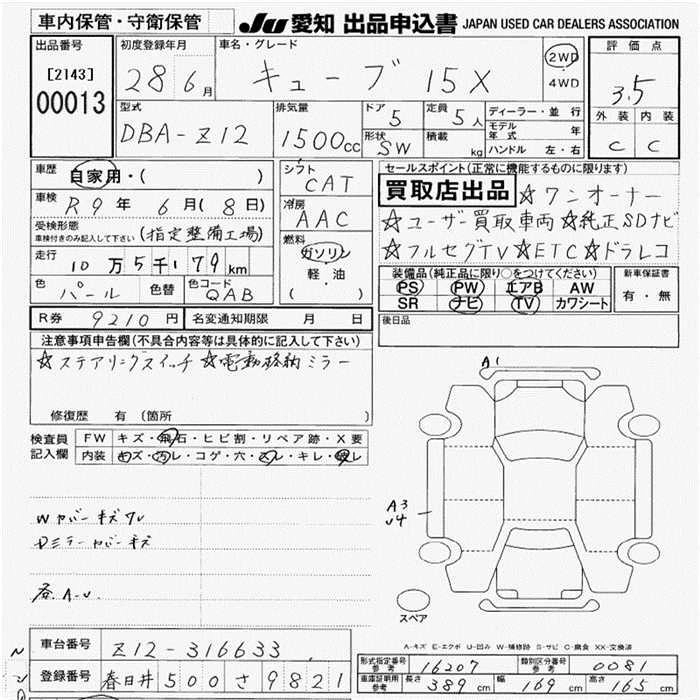 車内保管・守衛保管
JU 愛知 出品申込書 JAPAN USED CAR DEALERS ASSOCIATION
出品番号
[2143]
00013
初度登録年月
28年6月
車名・グレード
キューブ 15X
2WD
4WD
評価点
3.5
外装 内装
C C
型式
DBA-Z12
排気量
1500cc
ドア 5
形状 SW
定員 5人
積載 kg
ディーラー・並行
モデル年式 年
ハンドル 左・右
車歴
自家用・( )
車検
R9年6月(8日)
受検形態
車検付きのみ記入して下さい (指定整備工場)
走行
10万5千179km
色 パール 色替 色コード QAB
シフト
CAT
冷房
AAC
燃料
ガソリン
軽・油
( )
セールスポイント(正常に機能するものに限ります)
買取店出品 ☆ワンオーナー
☆ユーザー買取車両 ☆純正SDナビ
☆フルセグTV ☆ETC ☆ドラレコ
装備品(純正品に限り○をつけてください)
PS PW エアB AW
SR ナビ TV カワシート
新車保証書
有・無
後日品
R券 9210円 名変通知期限 月 日
注意事項申告欄(不具合内容等は具体的に記入して下さい)
☆ステアリングスイッチ ☆電動格納ミラー
修復歴 有 (箇所 )
検査員記入欄
FW キズ・飛石・ヒビ割・リペア跡・X要
内装 キズ・汚レ・コゲ・穴・スレ・キレ・破レ
Wカバーキズワレ
Dミラーカバーキズ
各A-U
A1
A3
U4
スペア
A-キズ E-エクボ U-凹み W-補修跡 S-サビ C-腐食 XX-交換済
車台番号 Z12-316633
登録番号 春日井500さ9821
形式指定番号 参考 16207 類別区分番号 参考 0081
車庫証明用 参考 長さ 389cm 幅 169cm 高さ 165cm